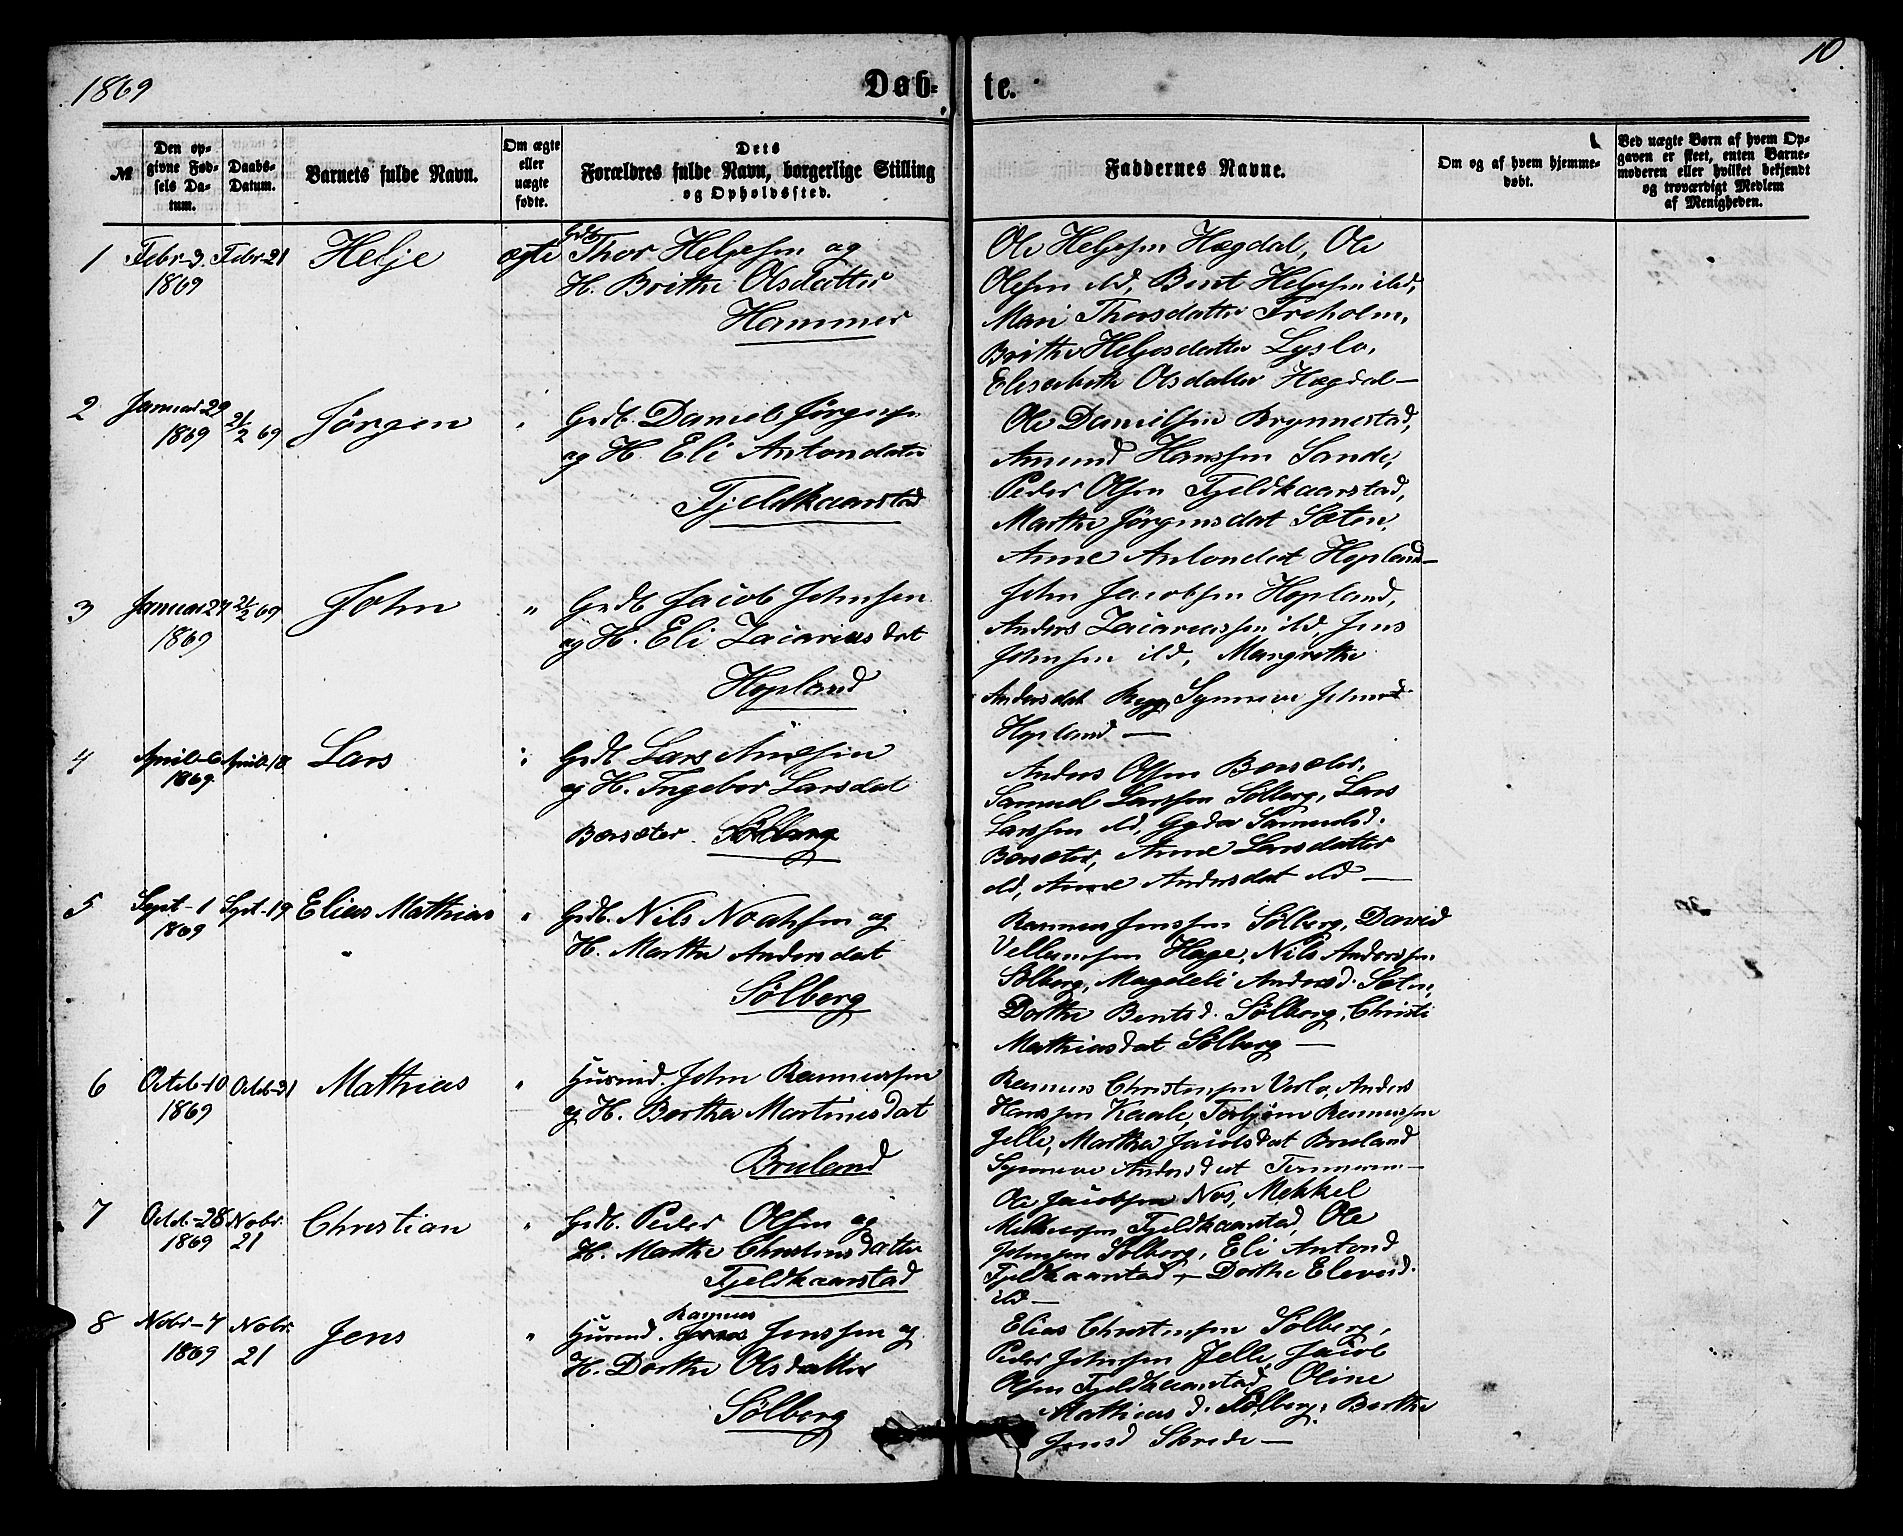 1869 Døb- te. 10.
№ Den opgivne Fødsels Datum. Daabs-Datum. Barnets fulde Navn. Om ægte eller uægte fødte. Dets Forældres fulde Navn, borgerlige Stilling og Opholdssted. Faddernes Navne. Om og af hvem hjemmedøbt. Ved uægte Børn af hvem Opgaven er skeet, enten Barnemoderen eller hvilket bekjendt og troværdigt Medlem af Menigheden.
1 Febr-3. 1869 Febr-21 Helje ægte Grdb. Thor Heljesen og
H. Brithe Olsdatter
Hammer
Ole Heljesen Hægdal, Ole
Olesen ibd, Bent Heljesen ibd,
Mari Thorsdatter Treholm,
Brithe Heljesdatter Lyslo,
Elisabeth Olsdatter Hægdal—
2 Januar 29 1869 21/2 69 Jørgen " Grdb. Daniel Jørgensen
og H Eli Antondatter
Fjeldkaarstad
Ole Danielsen Brynnestad,
Amund Hanssen Sande,
Peder Olsen Fjeldkaarstad,
Marthe Jørgensdat Sæten,
Anne Antondat Hopland—
3 Januar 27 1869 21/2 69 John " Grdb Jacob Johnsen
og H. Eli Zacariasdat
Hopland
John Jacobsen Hopland,
Anders Zacariassen ibd, Jens
Johnsen ibd, Margrethe
Andersdat Rygg, Synneve Johnsd
Hopland —
4 April-6 1869 April-18 Lars " Grdb Lars Anesen
og H. Ingebor Larsdat
Børsæter. Sølberg
Anders Olsen Børsæter,
Samuel Larssen Sølberg, Lars
Larssen ibd, Gyda Samuelsd.
Børsæter, Anne Larsdatter
ibd, Anne Andersdat ibd —
5 Sept-1 1869 Sept-19 Elias Mathias " Grdb. Nils Noahsen og
H. Marthe Andersdat
Sølberg
Rasmus Jenssen Sølberg, David
Vellumsen Hage, Nils Anderssen
Sølberg, Magdeli Andersd. Sæten,
Dorthe Bentsd. Sølberg, Christi
Mathiasdat Sølberg —
6 Octob-10 1869 Octob-31 Mathias " Husmd. John Rasmussen
og H. Berthe Martinusdat
Bruland
Rasmus Christensen Verlo, Anders
Hanssen Kaale, Torbjørn Rasmussen
Jelle, Marthe Jacobsdat Bruland
Synneve Andersdat
7 Octb.-28 1869 Nobr. 21 Christian " Grdb. Peder Olsen og
H. Marthe Christensdatter
Fjeldkaarstad
Ole Jacobsen Nos, Mekkel
Mekkelsen Fjeldkaarstad, Ole
Johnsen Sølberg, Eli Antond
Fjeldkaarstad — Dorthe Eleved.
ibd—
8 Nobr-7 1869 Nobr. 21 Jens " Husmd. Rasmus Jenssen og
H. Dorthe Olsdatter
Sølberg
Elias Christensen Sølberg,
Peder Johnsen Jelle, Jacob
Olsen Fjeldkaarstad, Oline
Mathiasd. Sølberg, Berthe
Jensd Skrede—